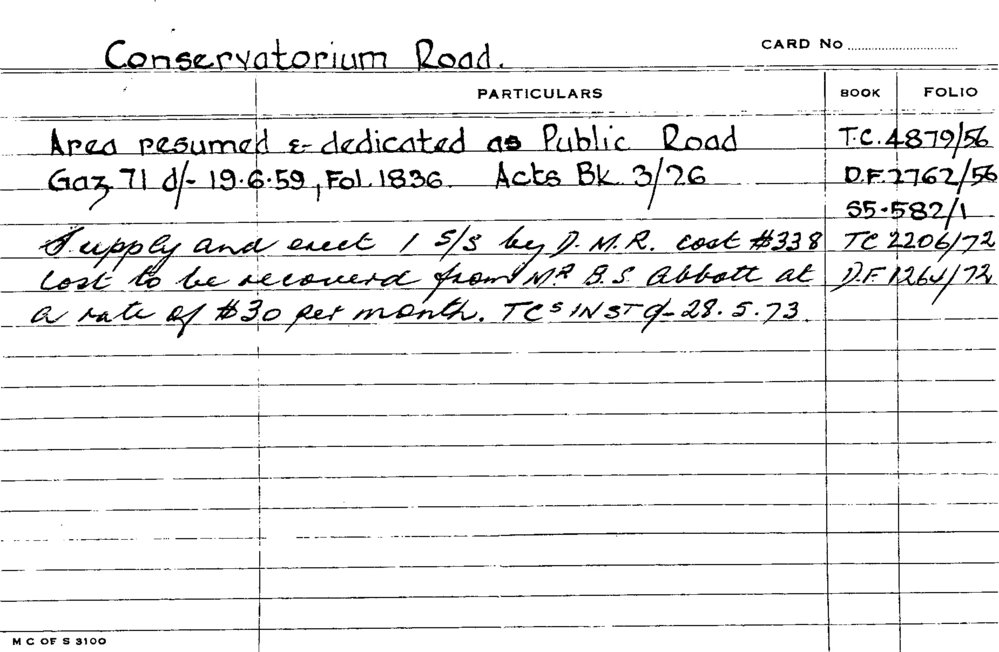 Conservatorium Road.
CARD No
PARTICULARS BOOK FOLIO
Area resumed & dedicated as Public Road T.C. 4879/56
Gaz 71 d/- 19.6.59, Fol. 1836. Acts Bk. 3/26 D.F. 2762/56
S5-582/1
Supply and erect 1 S/S by D.M.R. cost $338 TC 2206/72
cost to be recoverd from MR B.S. Abbott at D.F. /72
a rate of $30 per month. TCs INST d- 28.5.73
M C OF S 3100